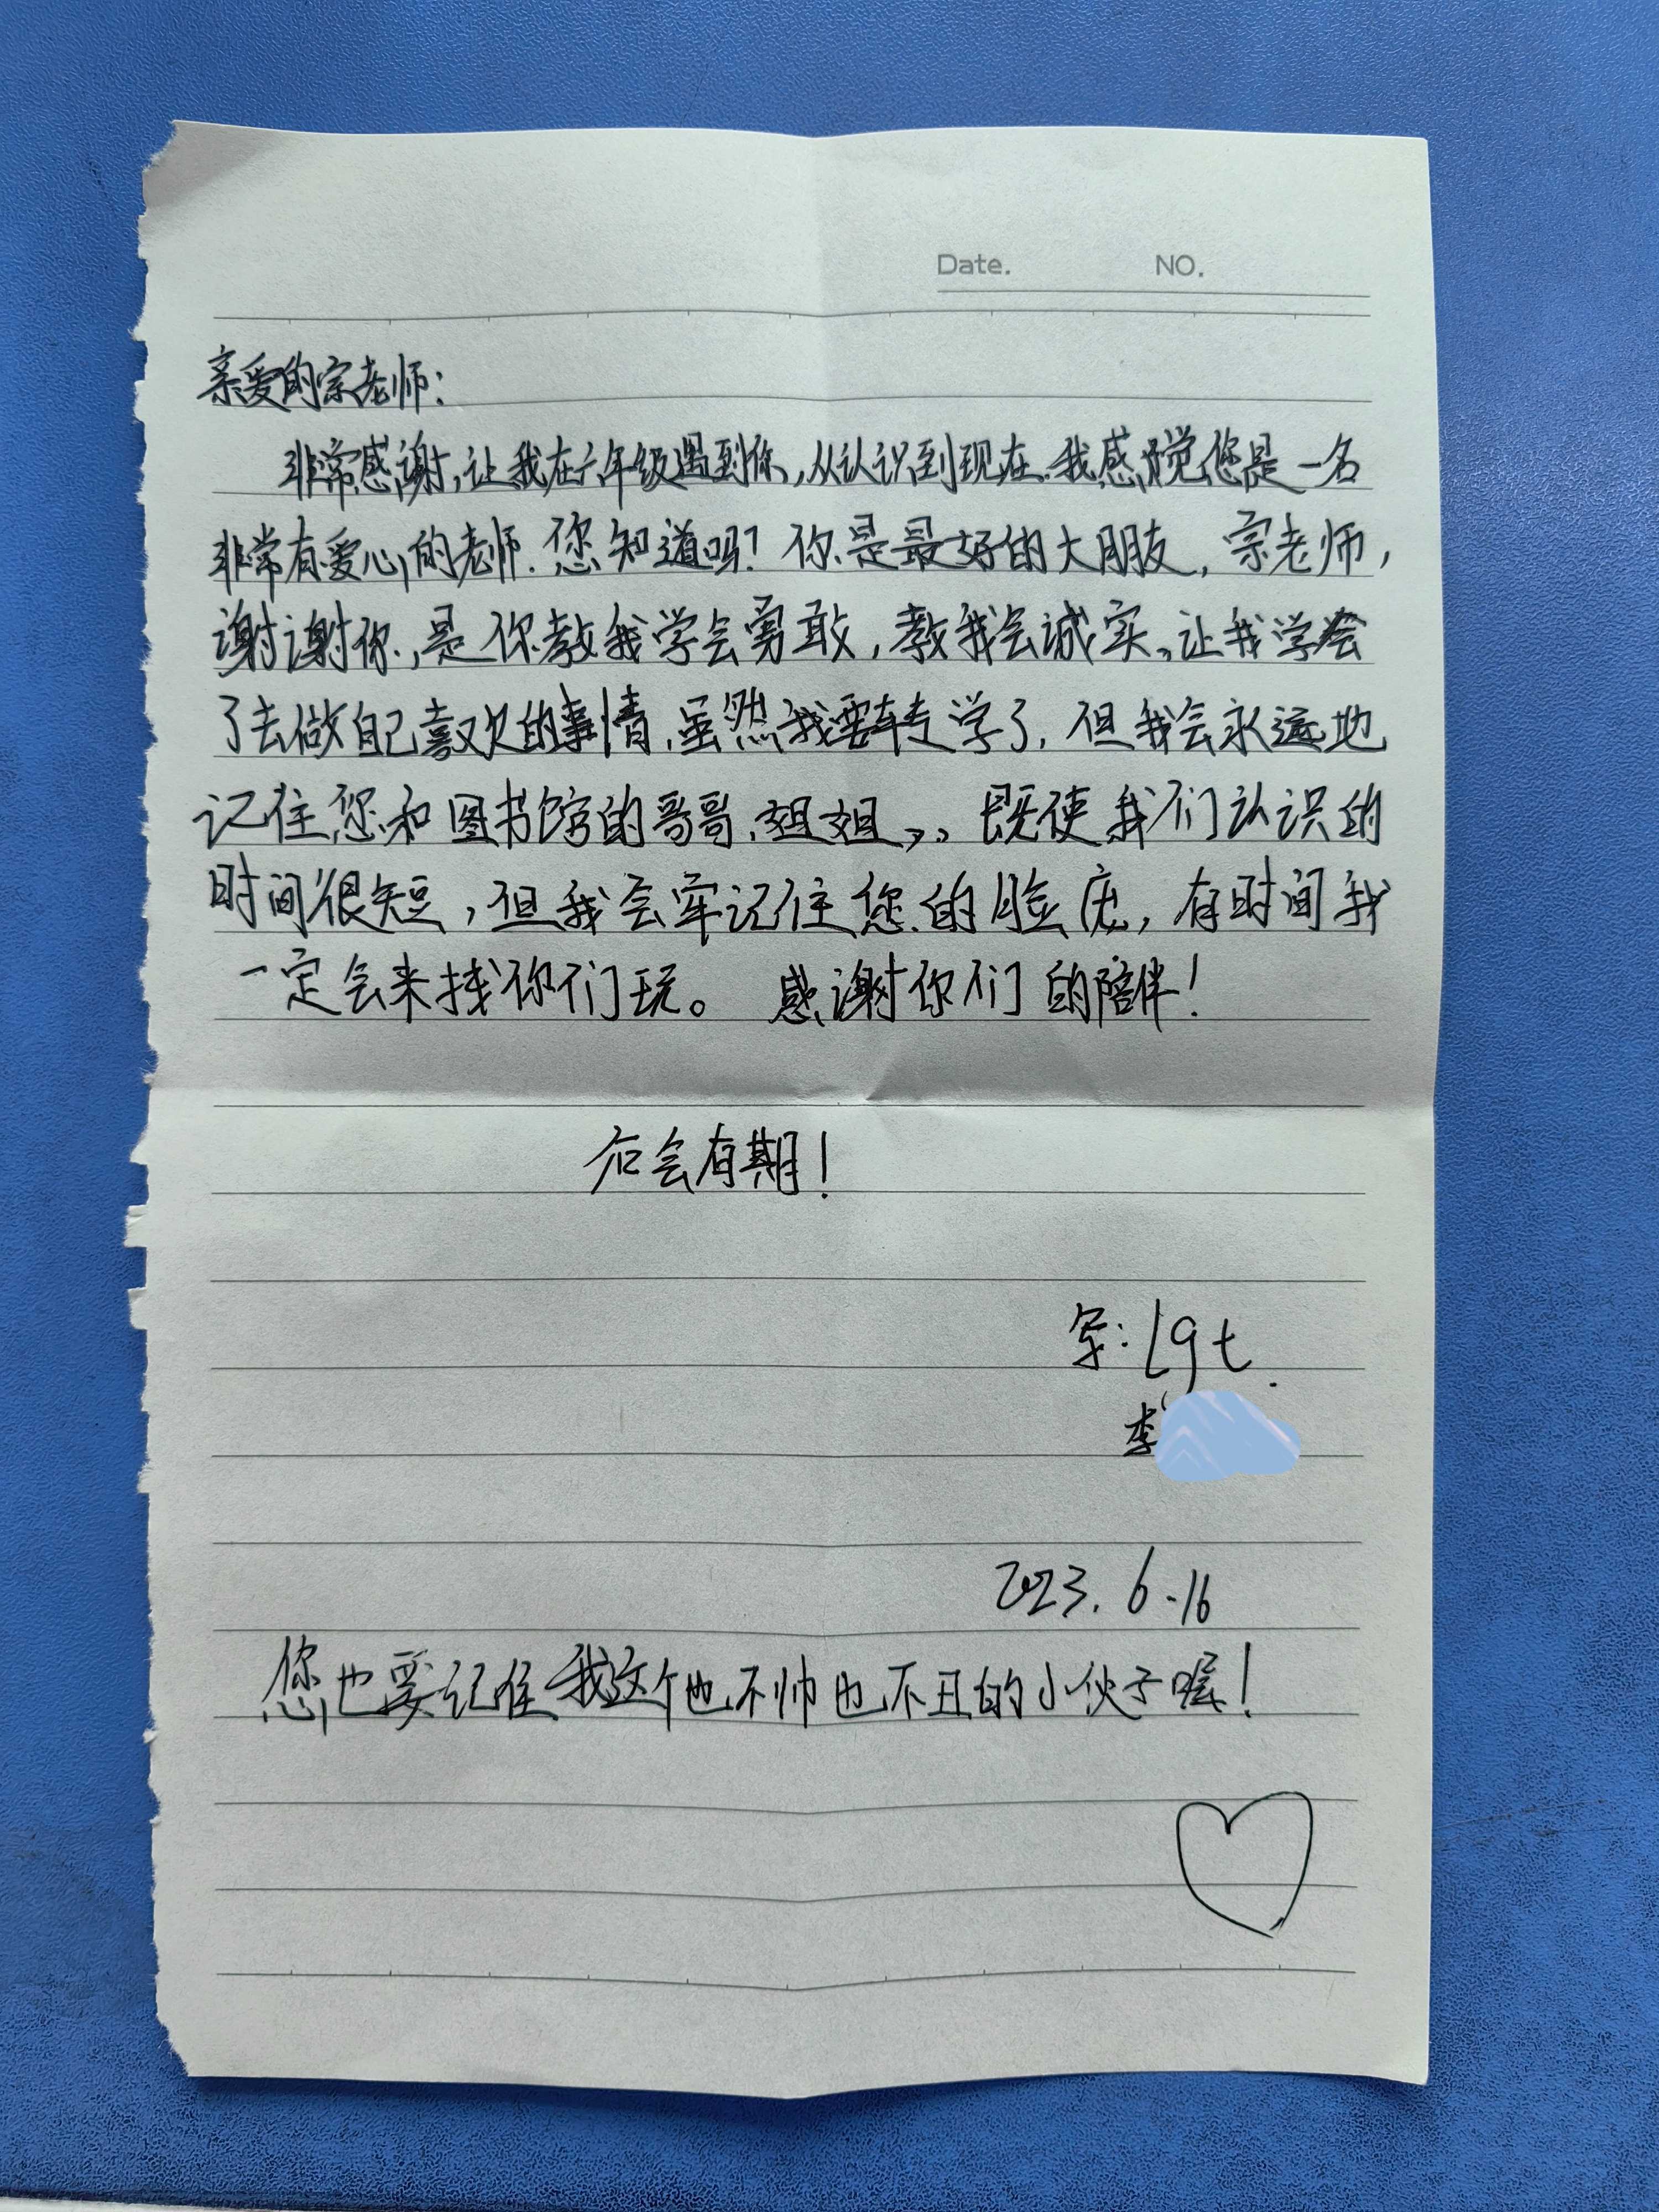 Date. NO.
亲爱的宗老师：
非常感谢，让我在六年级遇到你，从认识到现在.我感觉您是一名
非常有爱心的老师.您知道吗？你是最好的大朋友，宗老师，
谢谢你，是你教我学会勇敢，教我会诚实。让我学会
了去做自己喜欢的事情.虽然我要转学了，但我会永远地
记住您和图书馆的哥哥、姐姐，。既使我们认识的
时间很短，但我会牢记住您的脸庞，有时间我
一定会来找你们玩。感谢你们的陪伴！
后会有期！
写：lgt.
李
2023.6.16
您也要记住我这个也不帅也不丑的小伙子喔！